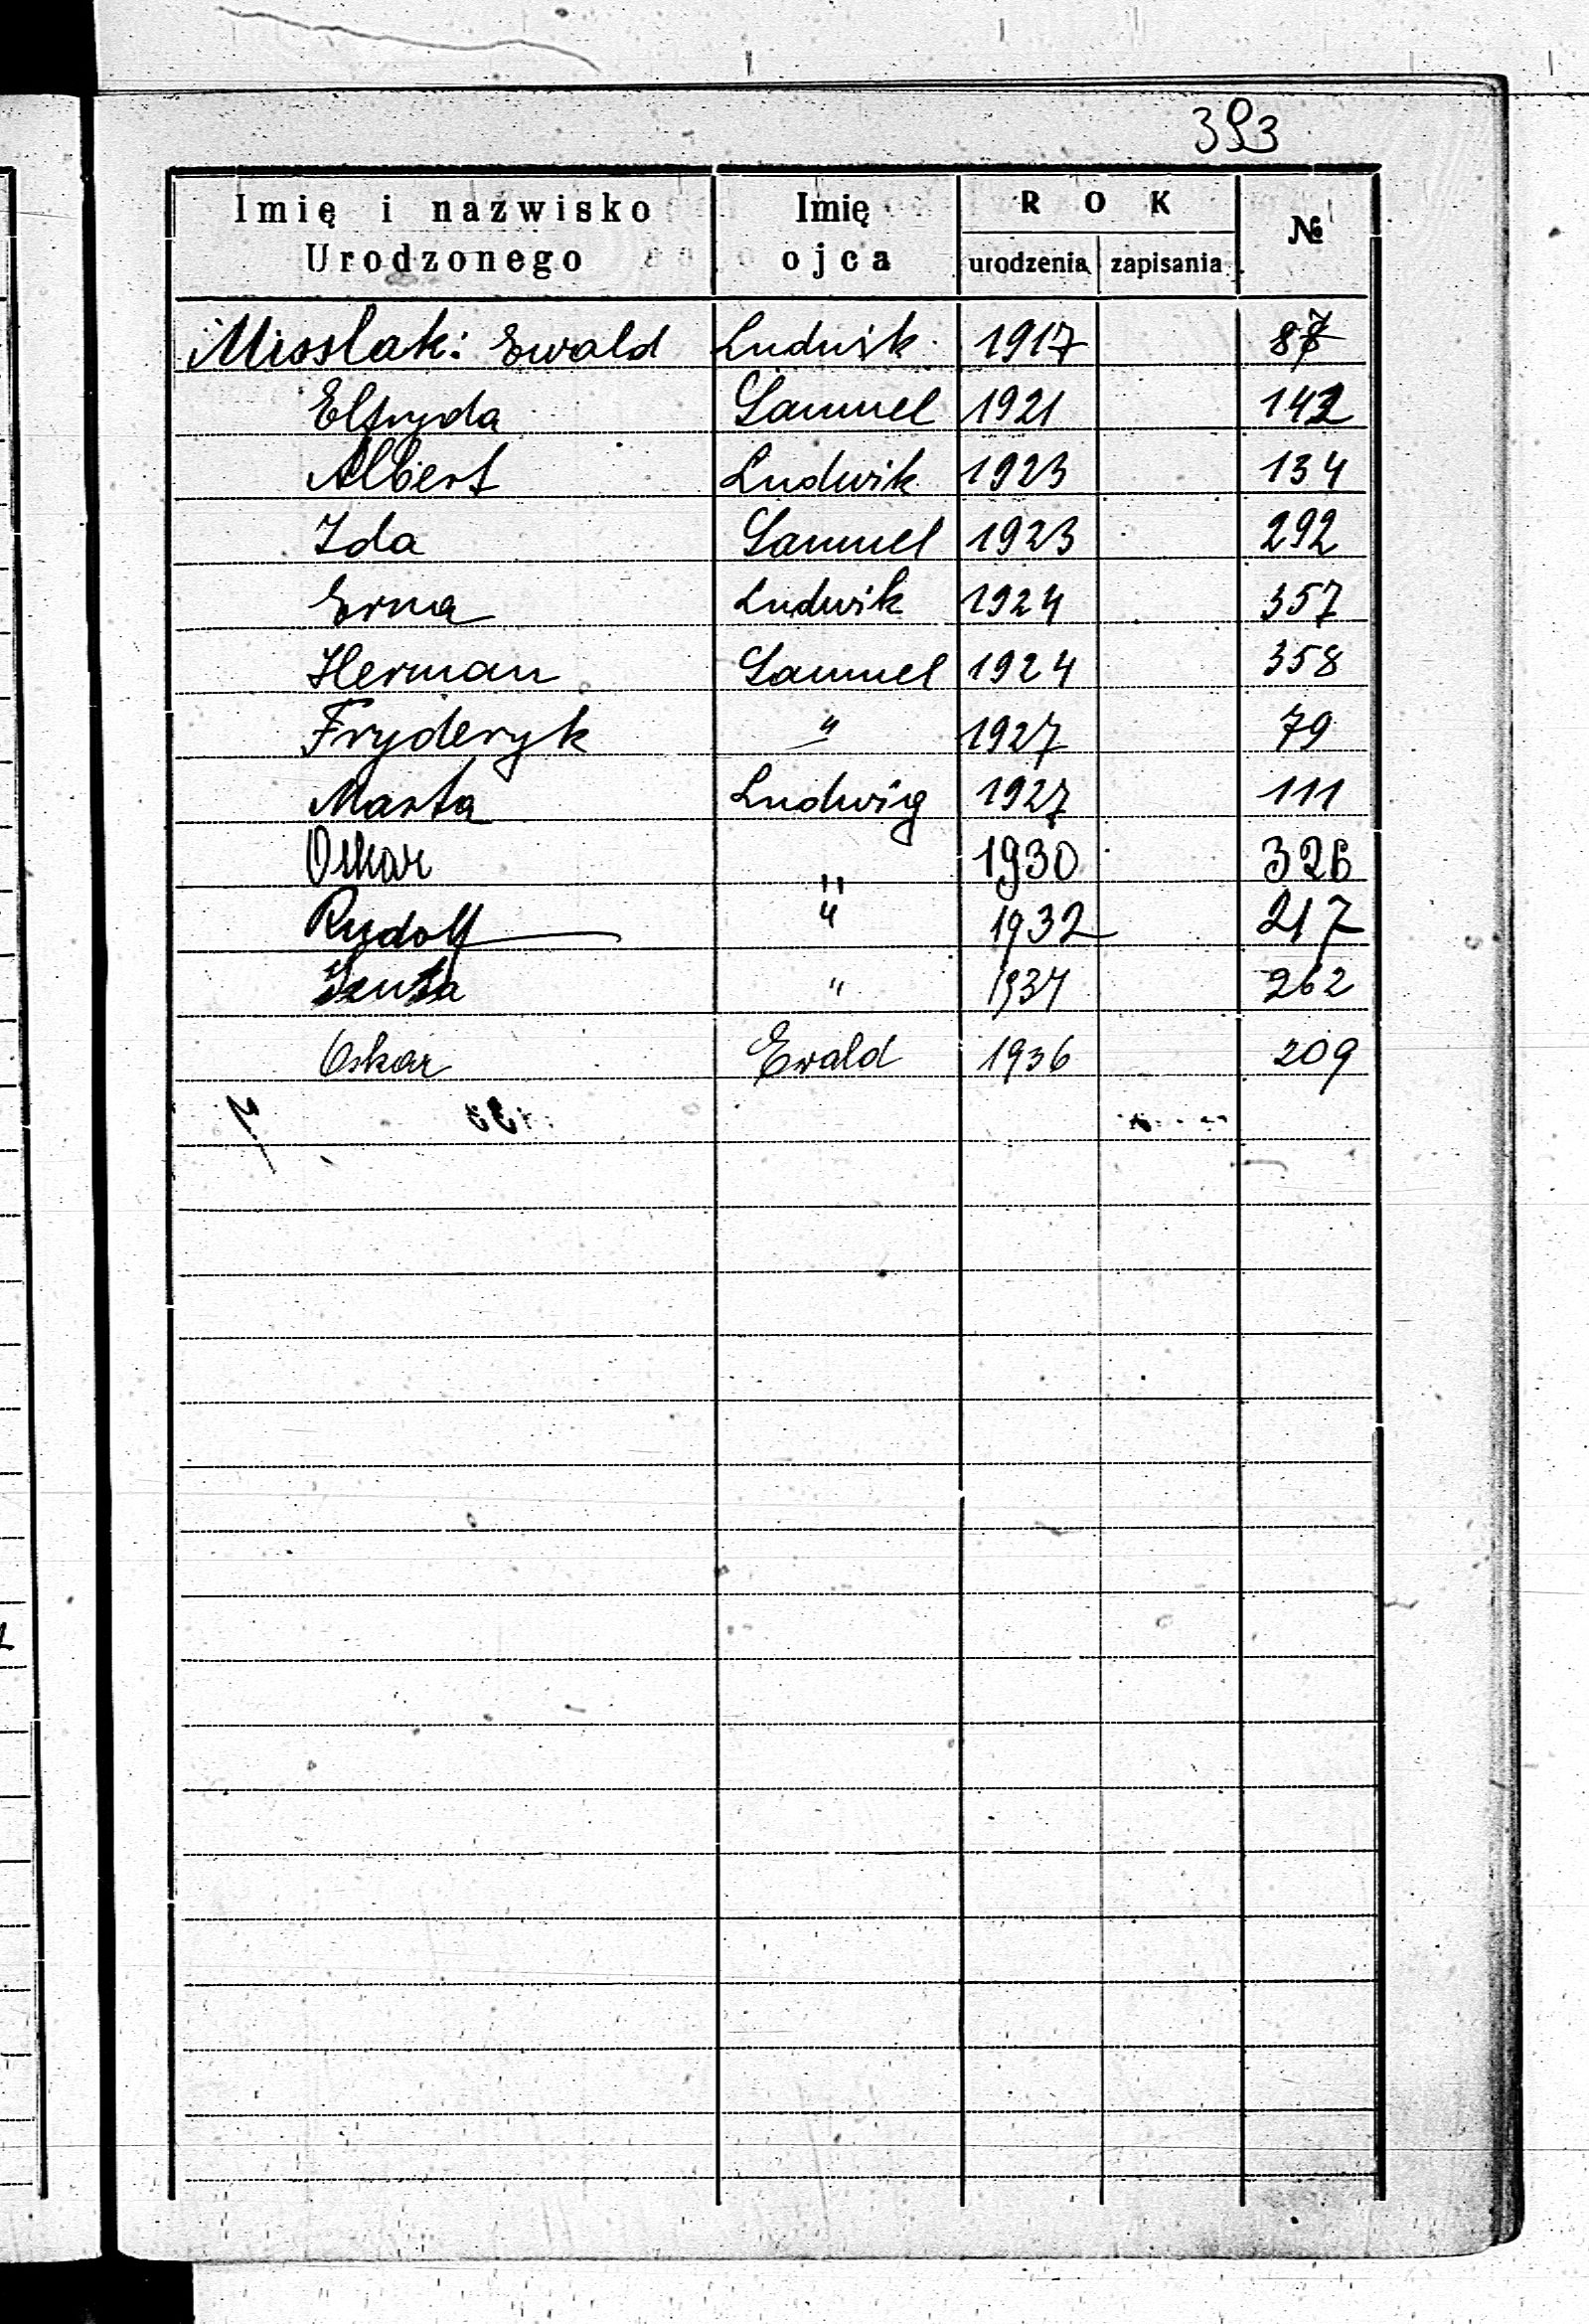 393
Imię i nazwisko Urodzonego Imię ojca ROK urodzenia zapisania №
Misslak: Ewald Ludwik 1917 87
Elfryda Samuel 1921 142
Albert Ludwik 1923 134
Ida Samuel 1923 292
Erna Ludwik 1924 357
Herman Samuel 1924 358
Fryderyk " 1927 79
Marta Ludwig 1927 111
Oskar " 1930 326
Rudolf " 1932 217
" 1934 262
Oskar Ewald 1936 209